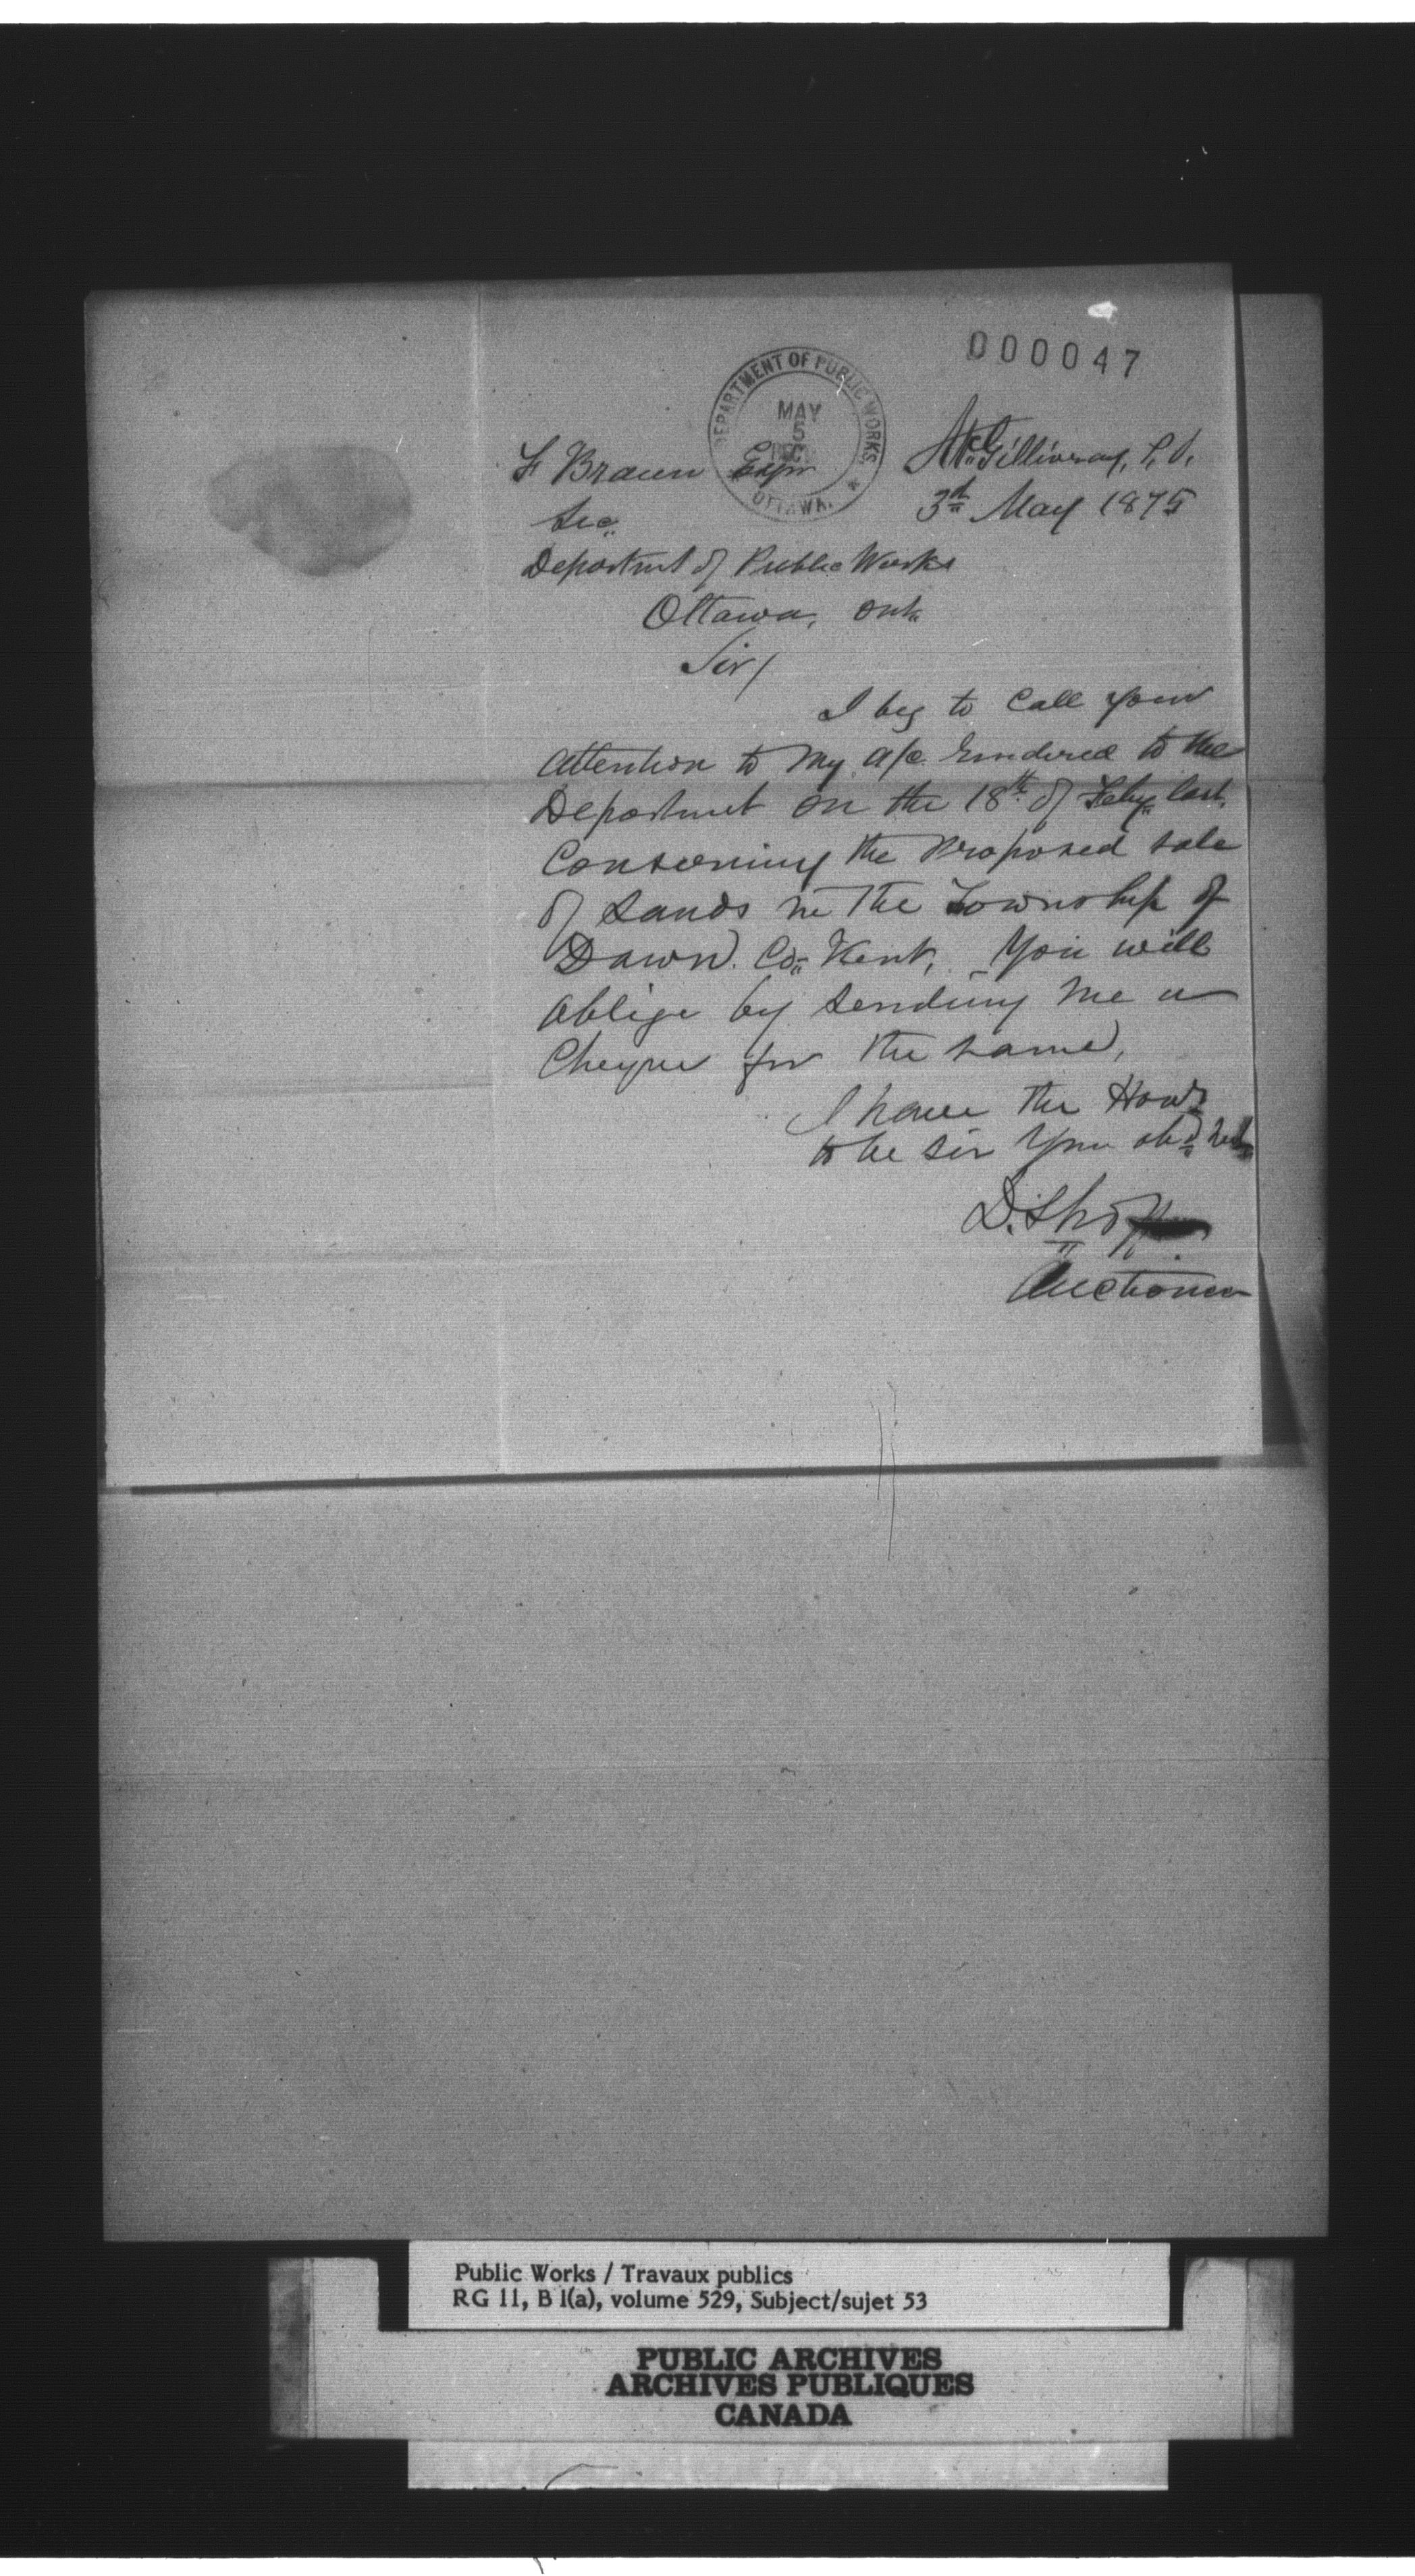 000047
DEPARTMENT OF PUBLIC WORKS
MAY
5
REC
OTTAWA.
McGillivray, P.O.
3d May 1875
F Braun Esqr
Sec
Department of Public Works
Ottawa, Ont.
Sir/
I beg to Call your
attention to my a/c rendered to the
Department on the 18th of Feby last,
Concerning the Proposed sale
of Lands in the Township of
Dawn. Co. Kent, You will
oblige by sending me a
Cheque for the same,
I have the Honr
to be Sir Your obd
D. Shoff
Auctioneer
Public Works / Travaux publics
RG 11, B 1(a), volume 529, Subject/sujet 53
PUBLIC ARCHIVES
ARCHIVES PUBLIQUES
CANADA